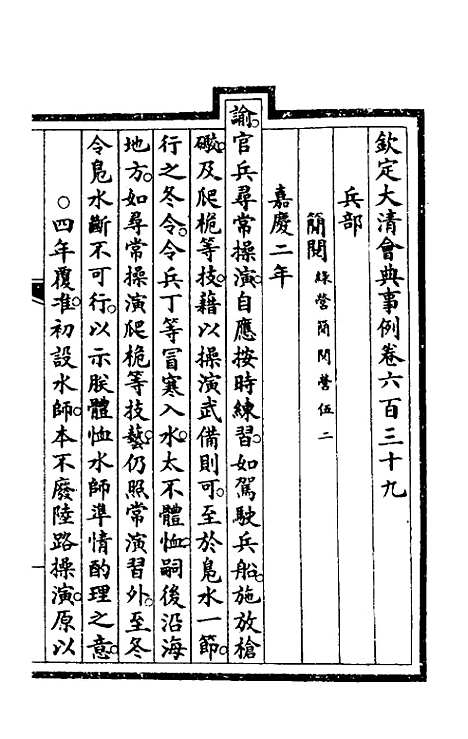 欽定大清會典事例卷六百三十九
兵部
簡閱綠營簡閱營伍二
嘉慶二年
諭官兵尋常操演自應按時練習如駕駛兵船施放槍
礮及爬桅等技藉以操演武備則可至於鳧水一節
行之冬令令兵丁等冒寒入水太不體恤嗣後沿海
地方如尋常操演爬桅等技藝仍照常演習外至冬
令鳧水斷不可行以示朕體恤水師準情酌理之意
○四年覆准初設水師本不廢陸路操演原以